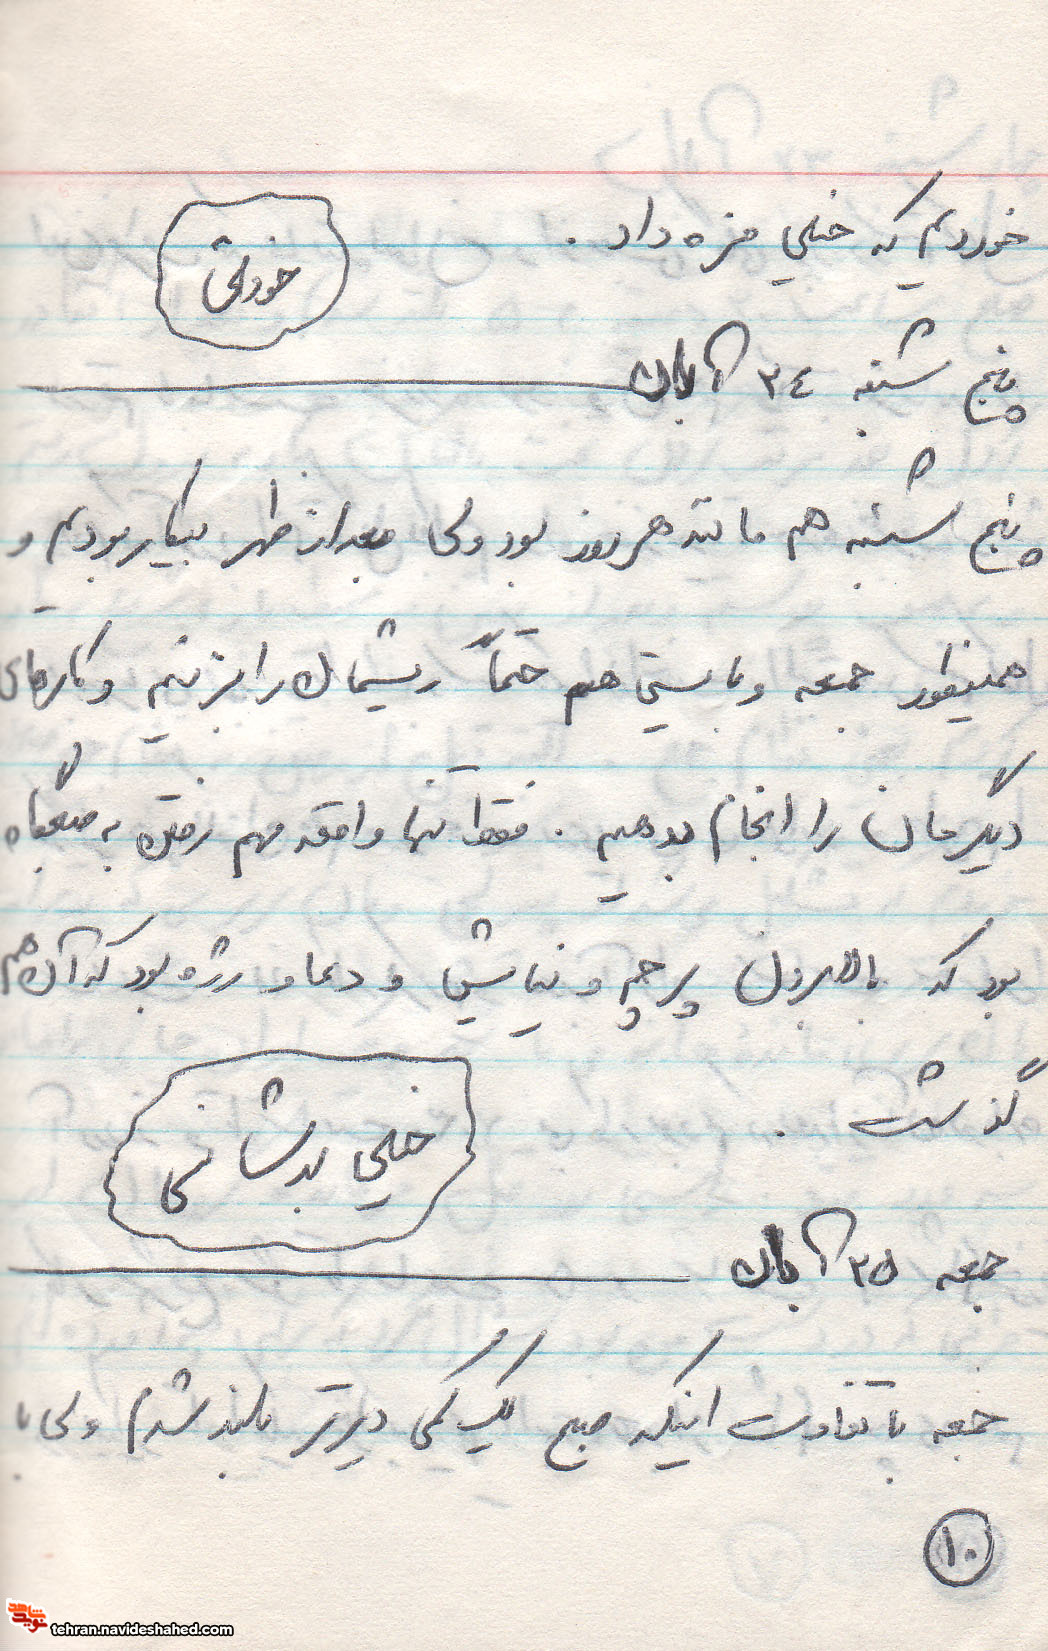 خوردیم که خیلی مزه داد .
خودنی
پنج شنبه ۲٤ آبان
پنج شنبه هم مانند هر روز بود ولی بعد از ظهر بیکار بودیم و
همینطور جمعه و بایستی هم حتماً ریشمان را بزنیم و کارهای
دیگرمان را انجام بدهیم . فقط تنها واقعه مهم رفتن به صبحگاه
بود که پرچم و نیایش و دعا و رژه بود که آن هم
گذشت .
خیلی بدشانسی
جمعه ۲۵ آبان
جمعه با تفاوت اینکه صبح یک کمی دیرتر بلند شدم ولی با
۱۰
شاهد
نوید
tehran.navideshahed.com